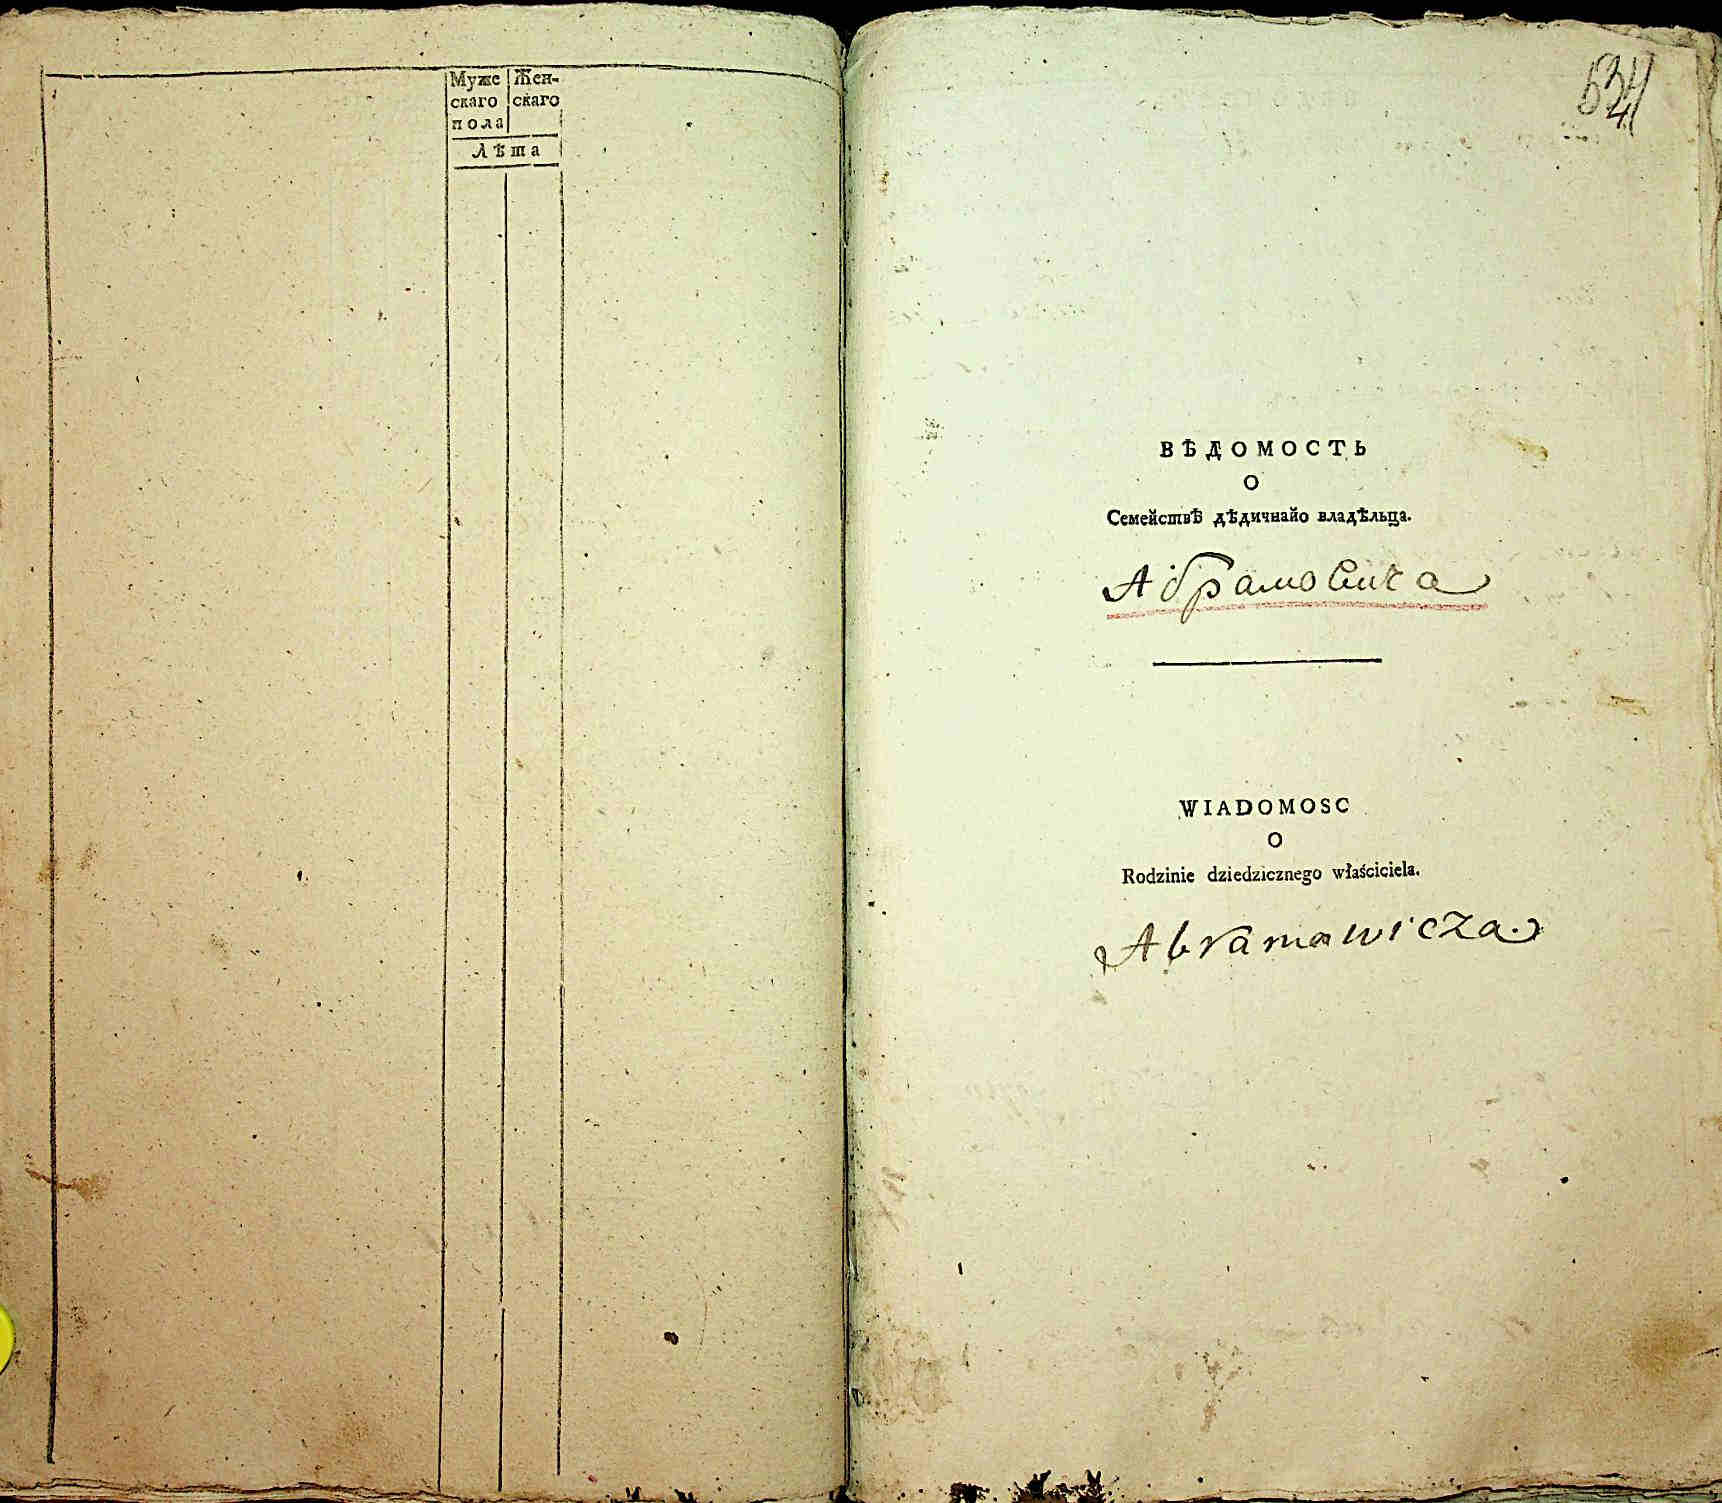 Муже
скаго
пола
Жен-
скаго
Лѣта
ВѢДОМОСТЬ
О
Семействѣ дѣдичнайо владѣльца.
Абрамовича
WIADOMOSC
O
Rodzinie dziedzicznego właściciela.
Abramowicza.